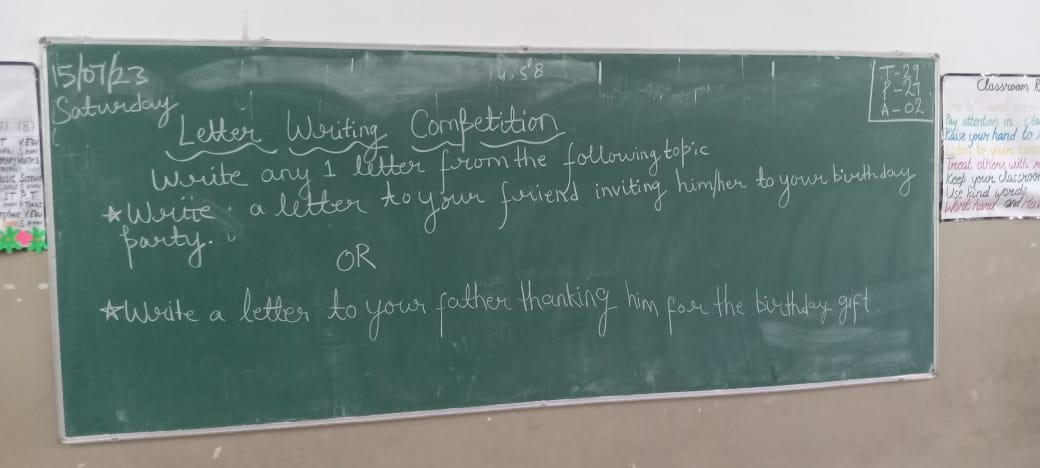 15/07/23
Saturday
T-29
P-27
A-02
Letter Writing Competition
Write any 1 letter from the following topic
★ Write a letter to your friend inviting him/her to your birthday
party.
OR
★ Write a letter to your father thanking him for the birthday gift.
Classroom
Pay attention in
Raise your hand to
Listen to your
Treat others with
Keep your classroom
Use kind words
Work hard and